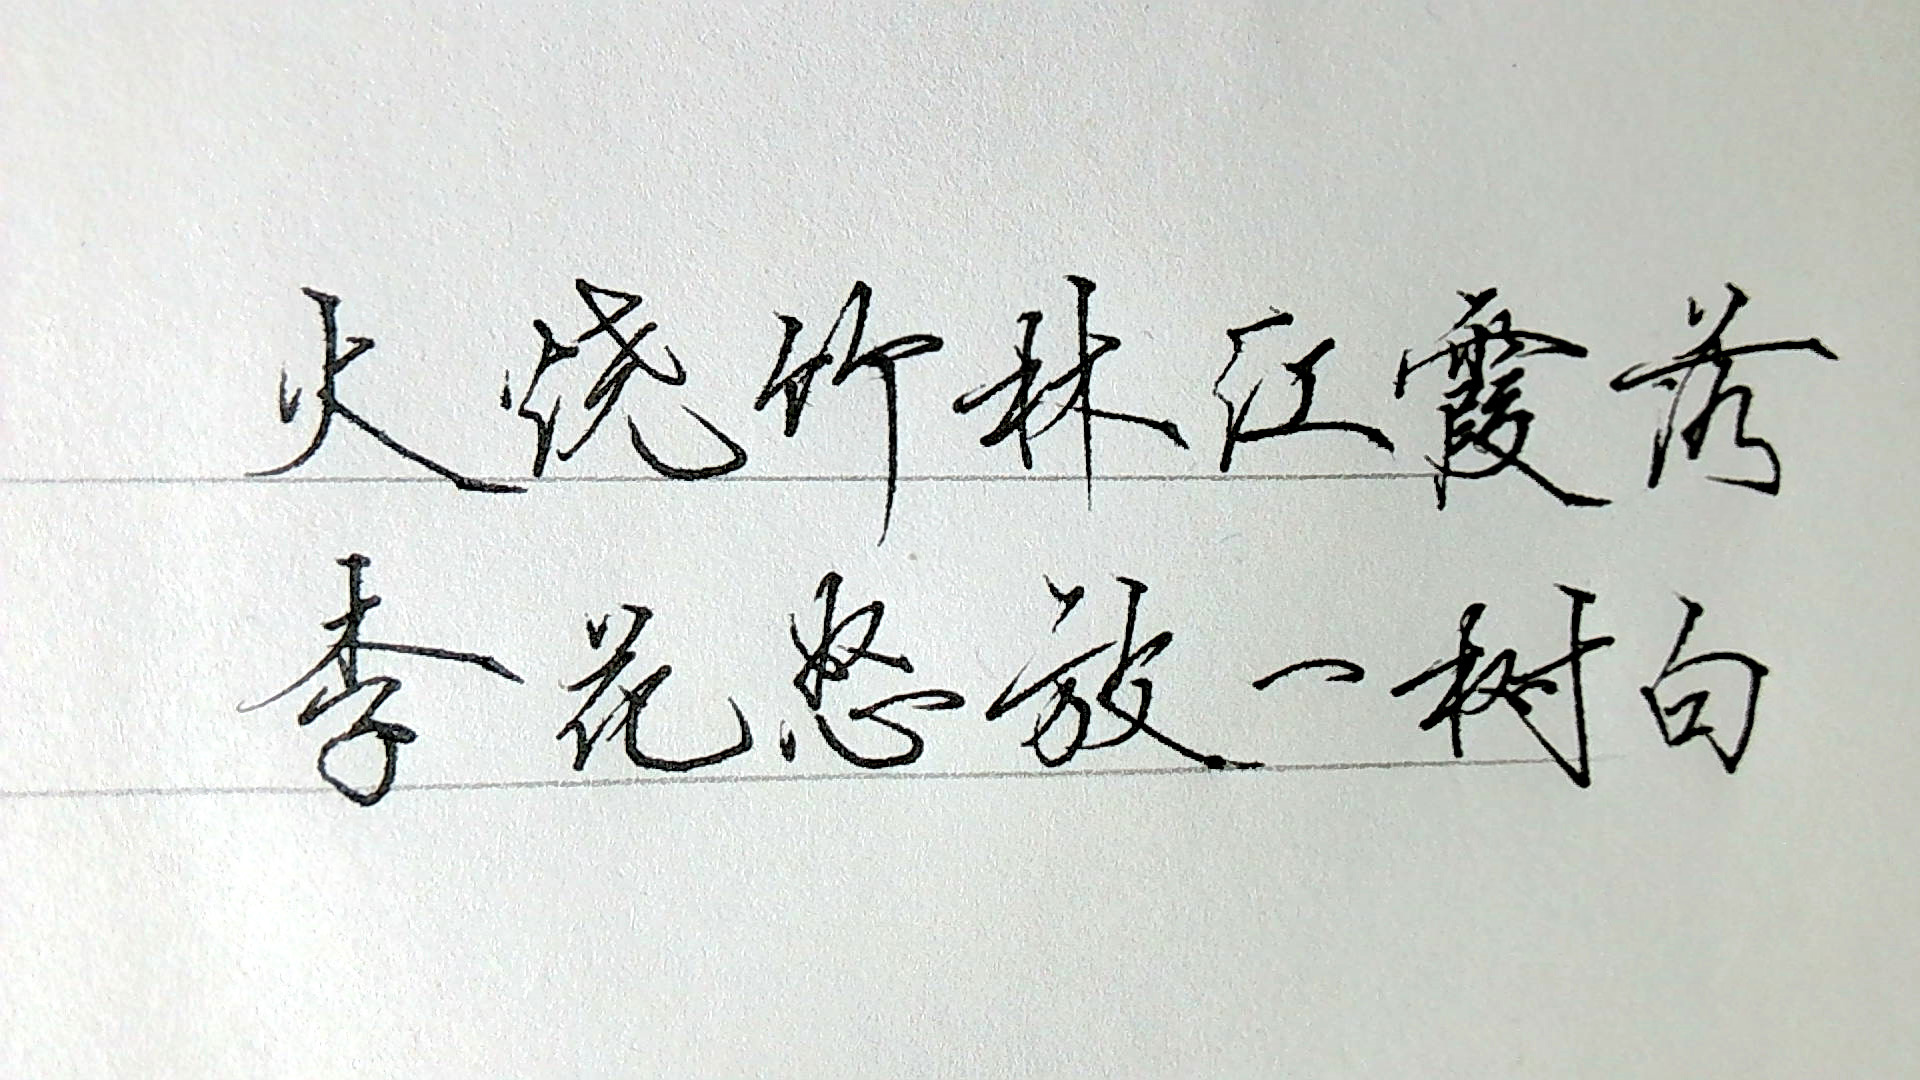 火烧竹林江霞落
李花怒放一树白